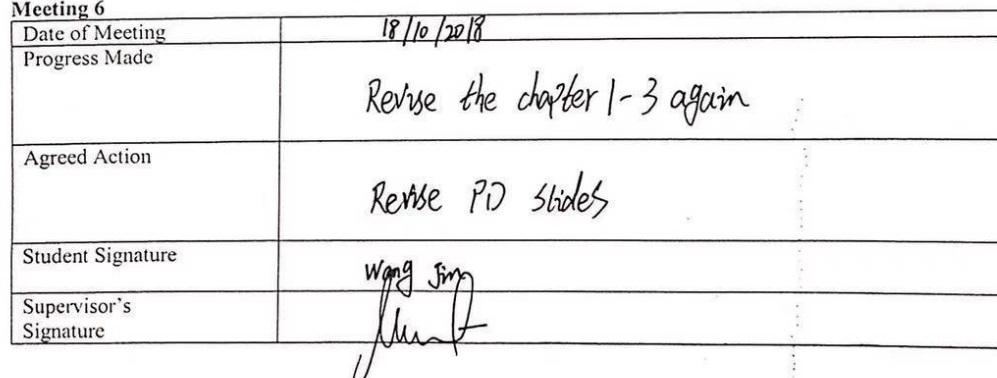 Meeting 6
Date of Meeting 18/10/2018
Progress Made
Revise the chapter 1-3 again
Agreed Action
Revise PD slides
Student Signature
Wang Jing
Supervisor's
Signature